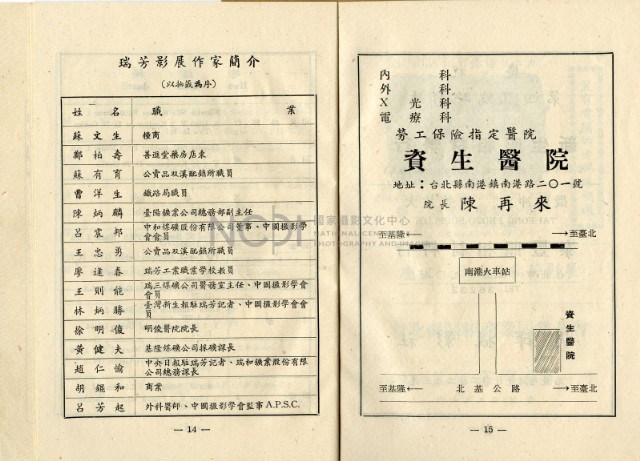 瑞芳影展作家簡介
(以拈籤為序)
姓名 職業
蘇文生 糧商
鄭柏壽 善進堂藥房店東
蘇有育 公賣品双溪配銷所職員
曹洋生 鐵路局職員
陳炳麟 臺陽礦業公司總務部副主任
呂宸邦 中和煤礦股份有限公司監事、中國攝影學會會員
王忠勇 公賣品双溪配銷所職員
廖達春 瑞芳工業職業學校教員
王則能 瑞三煤礦公司醫務室主任、中國攝影學會會員
林炳勝 臺灣新生報駐瑞芳記者、中國攝影學會會員
徐明俊 明俊醫院院長
黃健夫 基隆煤礦公司採礦課長
趙仁愉 中央日報駐瑞芳記者、瑞和礦業股份有限公司總務課長
胡錕和 商業
呂芳起 外科醫師、中國攝影學會監事A.P.S.C.
— 14 —
內科
外科
X光科
電療科
勞工保險指定醫院
資生醫院
地址：台北縣南港鎮南港路二〇一號
院長 陳再來
至基隆← →至臺北
南港火車站
資生醫院
至基隆← 北基公路 →至臺北
— 15 —
NCPI 國家攝影文化中心
NATIONAL CENTER
PHOTOGRAPHY AND IMAGES